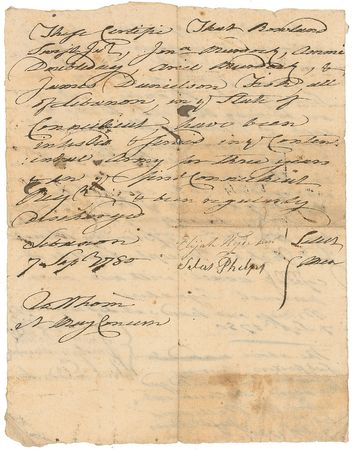 These Certifie That Rowland
Swift Jur. Jona Murdock,
Murdock, &
James Danielson Frost all
of Lebanon, in ye State of
Connecticut have been
inlisted & served in ye Conten
ental Army for three years
in ye first Connecticut
Regt. & been regularly
Discharged
Lebanon
7 Sept. 1780
Elijah
Silas Phelps
Select
Men
To Whom
It May Concern